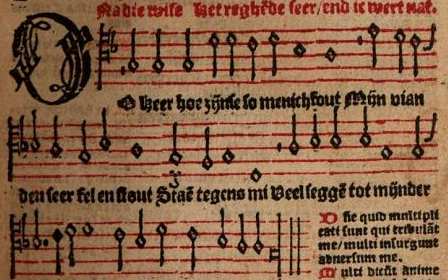 Na die wise Het reghẽde seer/ end ic wert nat.
O Heer hoe zijnse so menichfout Mijn vian
den seer fel en stout Staẽ tegens mi Veel seggẽ tot mijnder
Dñe quid multipli
cati sunt qui tribulãt
me/ multi insurgunt
aduersum me.
Multi dicũt anime